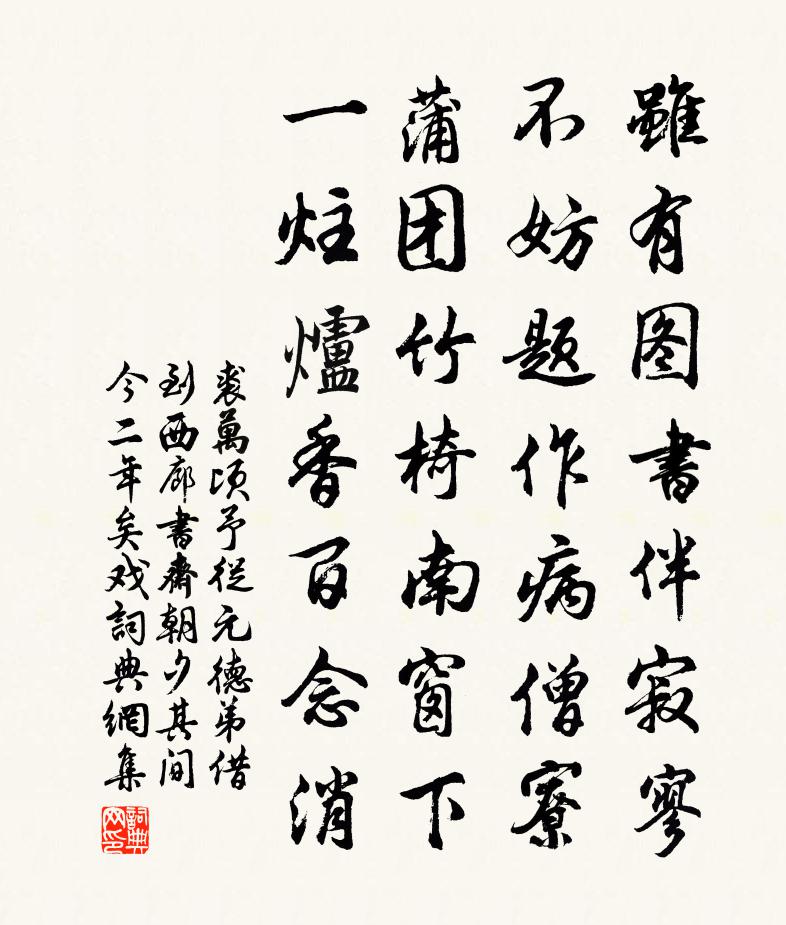 雖有图書伴寂寥
不妨题作病僧寮
蒲团竹椅南窗下
一炷爐香百念消
裘萬頃予從元德弟借
到西廊書齋朝夕其间
今二年矣戏詞典網集
詞典网印